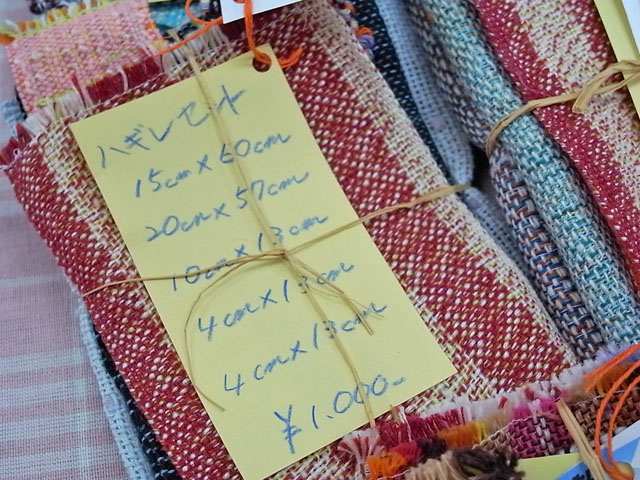 ハギレセット
15cm×60cm
20cm×57cm
10cm×13cm
4cm×13cm
4cm×13cm
¥1.000-